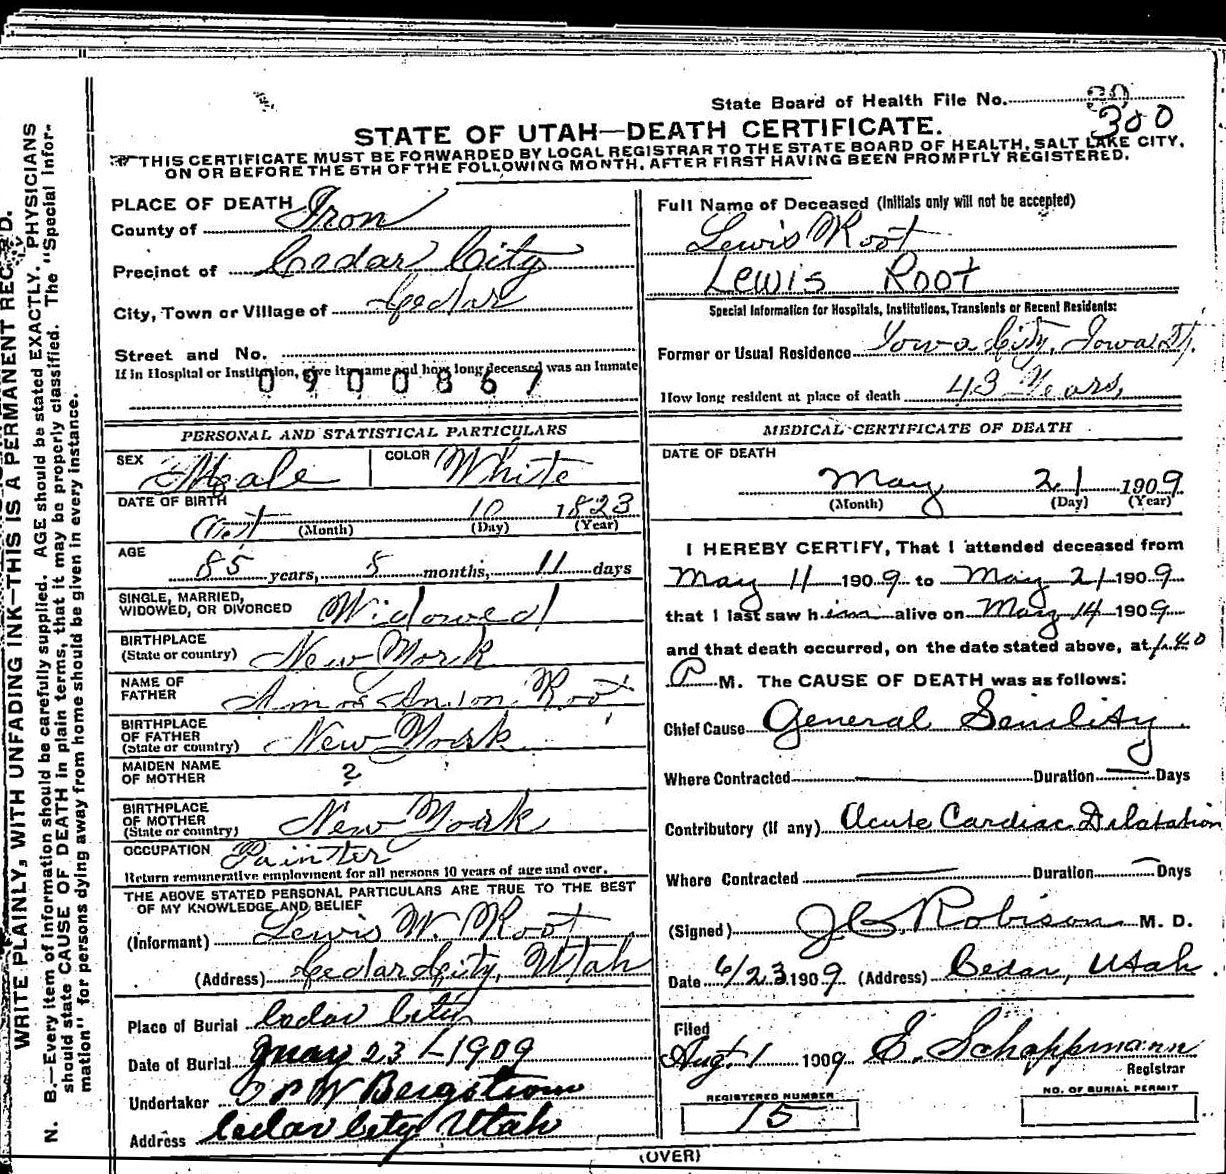 State Board of Health File No. 300
STATE OF UTAH—DEATH CERTIFICATE.
THIS CERTIFICATE MUST BE FORWARDED BY LOCAL REGISTRAR TO THE STATE BOARD OF HEALTH, SALT LAKE CITY,
ON OR BEFORE THE 5TH OF THE FOLLOWING MONTH, AFTER FIRST HAVING BEEN PROMPTLY REGISTERED.
PLACE OF DEATH
County of Iron
Precinct of Cedar City
City, Town or Village of Cedar
Street and No.
If in Hospital or Institution, give its name and how long deceased was an Inmate
0900867
PERSONAL AND STATISTICAL PARTICULARS
SEX Male COLOR White
DATE OF BIRTH
Oct 10 1823
(Month) (Day) (Year)
AGE
85 years, 5 months, 11 days
SINGLE, MARRIED,
WIDOWED, OR DIVORCED Widowed
BIRTHPLACE
(State or country) New York
NAME OF
FATHER Root
BIRTHPLACE
OF FATHER
(State or country) New York
MAIDEN NAME
OF MOTHER ?
BIRTHPLACE
OF MOTHER
(State or country) New York
OCCUPATION Painter
Return remunerative employment for all persons 10 years of age and over.
THE ABOVE STATED PERSONAL PARTICULARS ARE TRUE TO THE BEST
OF MY KNOWLEDGE AND BELIEF
(Informant) Lewis W. Root
(Address) Cedar City, Utah
Place of Burial Cedar City
Date of Burial May 23 - 1909
Undertaker W Bergstrom
Address Cedar City Utah
Full Name of Deceased (Initials only will not be accepted)
Lewis Root
Lewis Root
Special Information for Hospitals, Institutions, Transients or Recent Residents:
Former or Usual Residence Iowa City, Iowa
How long resident at place of death 43 Years,
MEDICAL CERTIFICATE OF DEATH
DATE OF DEATH
May 21 1909
(Month) (Day) (Year)
I HEREBY CERTIFY, That I attended deceased from
May 11 1909 to May 21 1909
that I last saw him alive on May 14 1909
and that death occurred, on the date stated above, at 1.40
P M. The CAUSE OF DEATH was as follows:
Chief Cause General Senility
Where Contracted — Duration — Days
Contributory (if any) Acute Cardiac Dilatation
Where Contracted — Duration — Days
(Signed) J C Robison M. D.
Date 6/23 1909 (Address) Cedar, Utah
Filed
Aug. 1 1909 E. Schoppmann
Registrar
REGISTERED NUMBER
15
NO. OF BURIAL PERMIT
(OVER)
WRITE PLAINLY, WITH UNFADING INK—THIS IS A PERMANENT RECORD.
N. B.—Every item of information should be carefully supplied. AGE should be stated EXACTLY. PHYSICIANS
should state CAUSE OF DEATH in plain terms, that it may be properly classified. The "Special Infor-
mation" for persons dying away from home should be given in every instance.